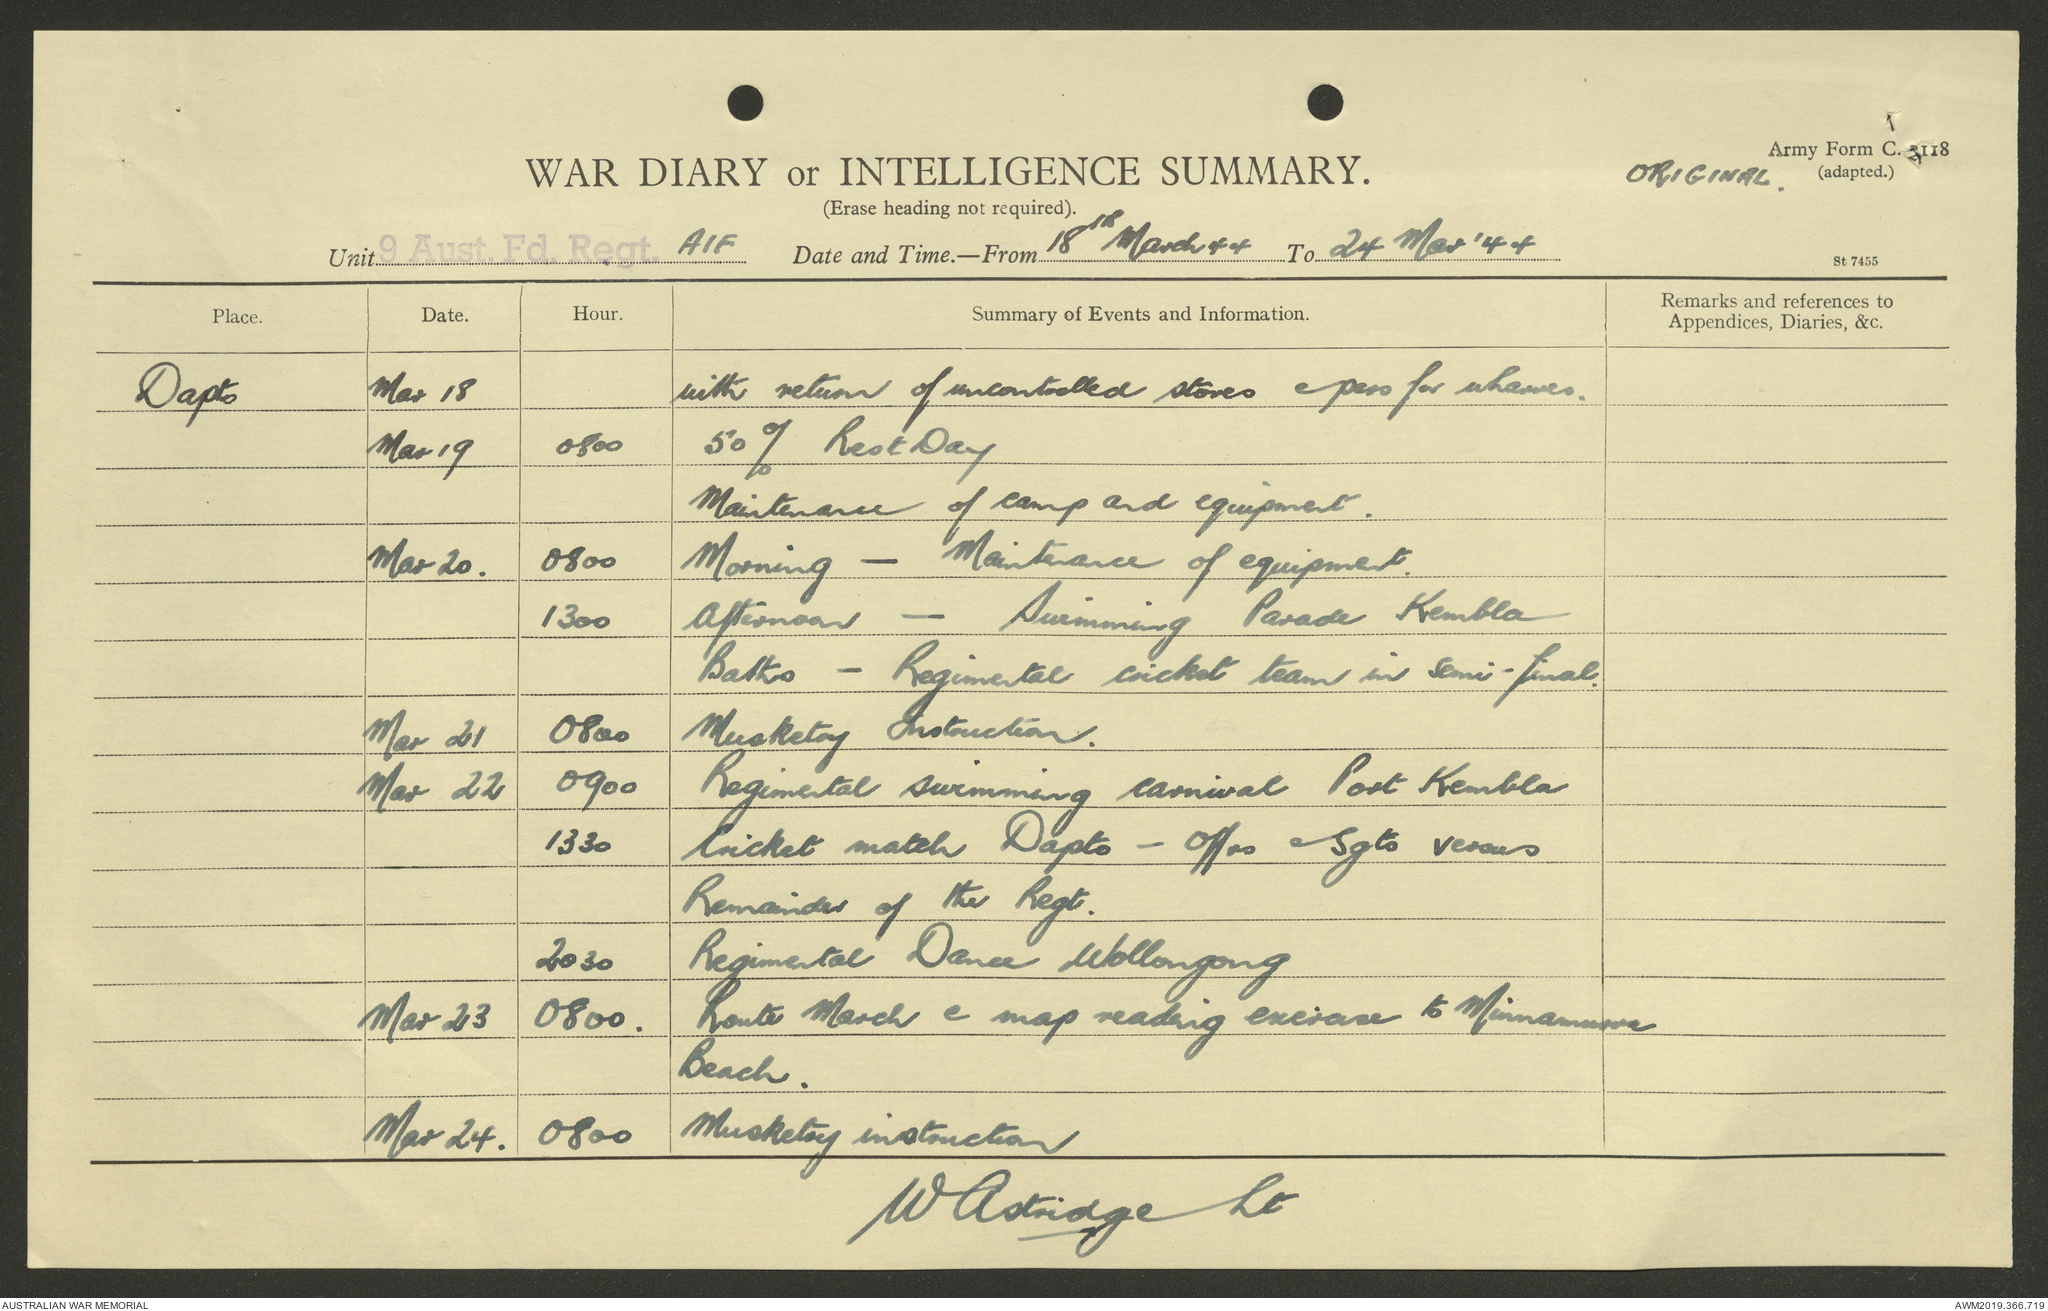 Army Form C. 2118
(adapted.)
ORIGINAL.
WAR DIARY or INTELLIGENCE SUMMARY.
(Erase heading not required).
Unit 9 Aust. Fd. Regt. AIF Date and Time.—From 18th March 44 To 24 Mar '44
St 7455
Place. Date. Hour. Summary of Events and Information. Remarks and references to
Appendices, Diaries, &c.
Dapto Mar 18 with return of uncontrolled stores & pers for wharves.
Mar 19 0800 50% Rest Day
Maintenance of camp and equipment.
Mar 20. 0800 Morning — Maintenance of equipment.
1300 Afternoon — Swimming Parade Kembla
Baths — Regimental cricket team in semi-final.
Mar 21 0800 Musketry Instruction.
Mar 22 0900 Regimental swimming carnival Port Kembla
1330 Cricket match Dapto — Offrs & Sgts versus
Remainder of the Regt.
2030 Regimental Dance Wollongong
Mar 23 0800. Route March & map reading exercise to Minnamurra
Beach.
Mar 24. 0800 Musketry instruction
W Astridge Lt
AUSTRALIAN WAR MEMORIAL AWM2019.366.719